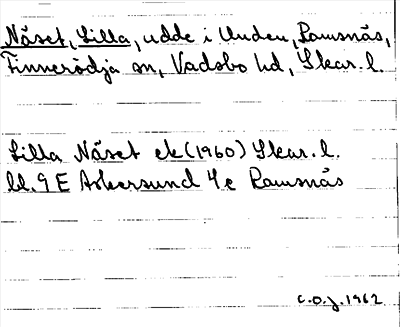 Näset, Lilla, udde i Unden, Ramsnäs,
Finnerödja sn, Vadsbo hd, Skar. l.
Lilla Näset ek (1960) Skar. l.
bl. 9 E Askersund 4e Ramsnäs
C.O.J. 1962